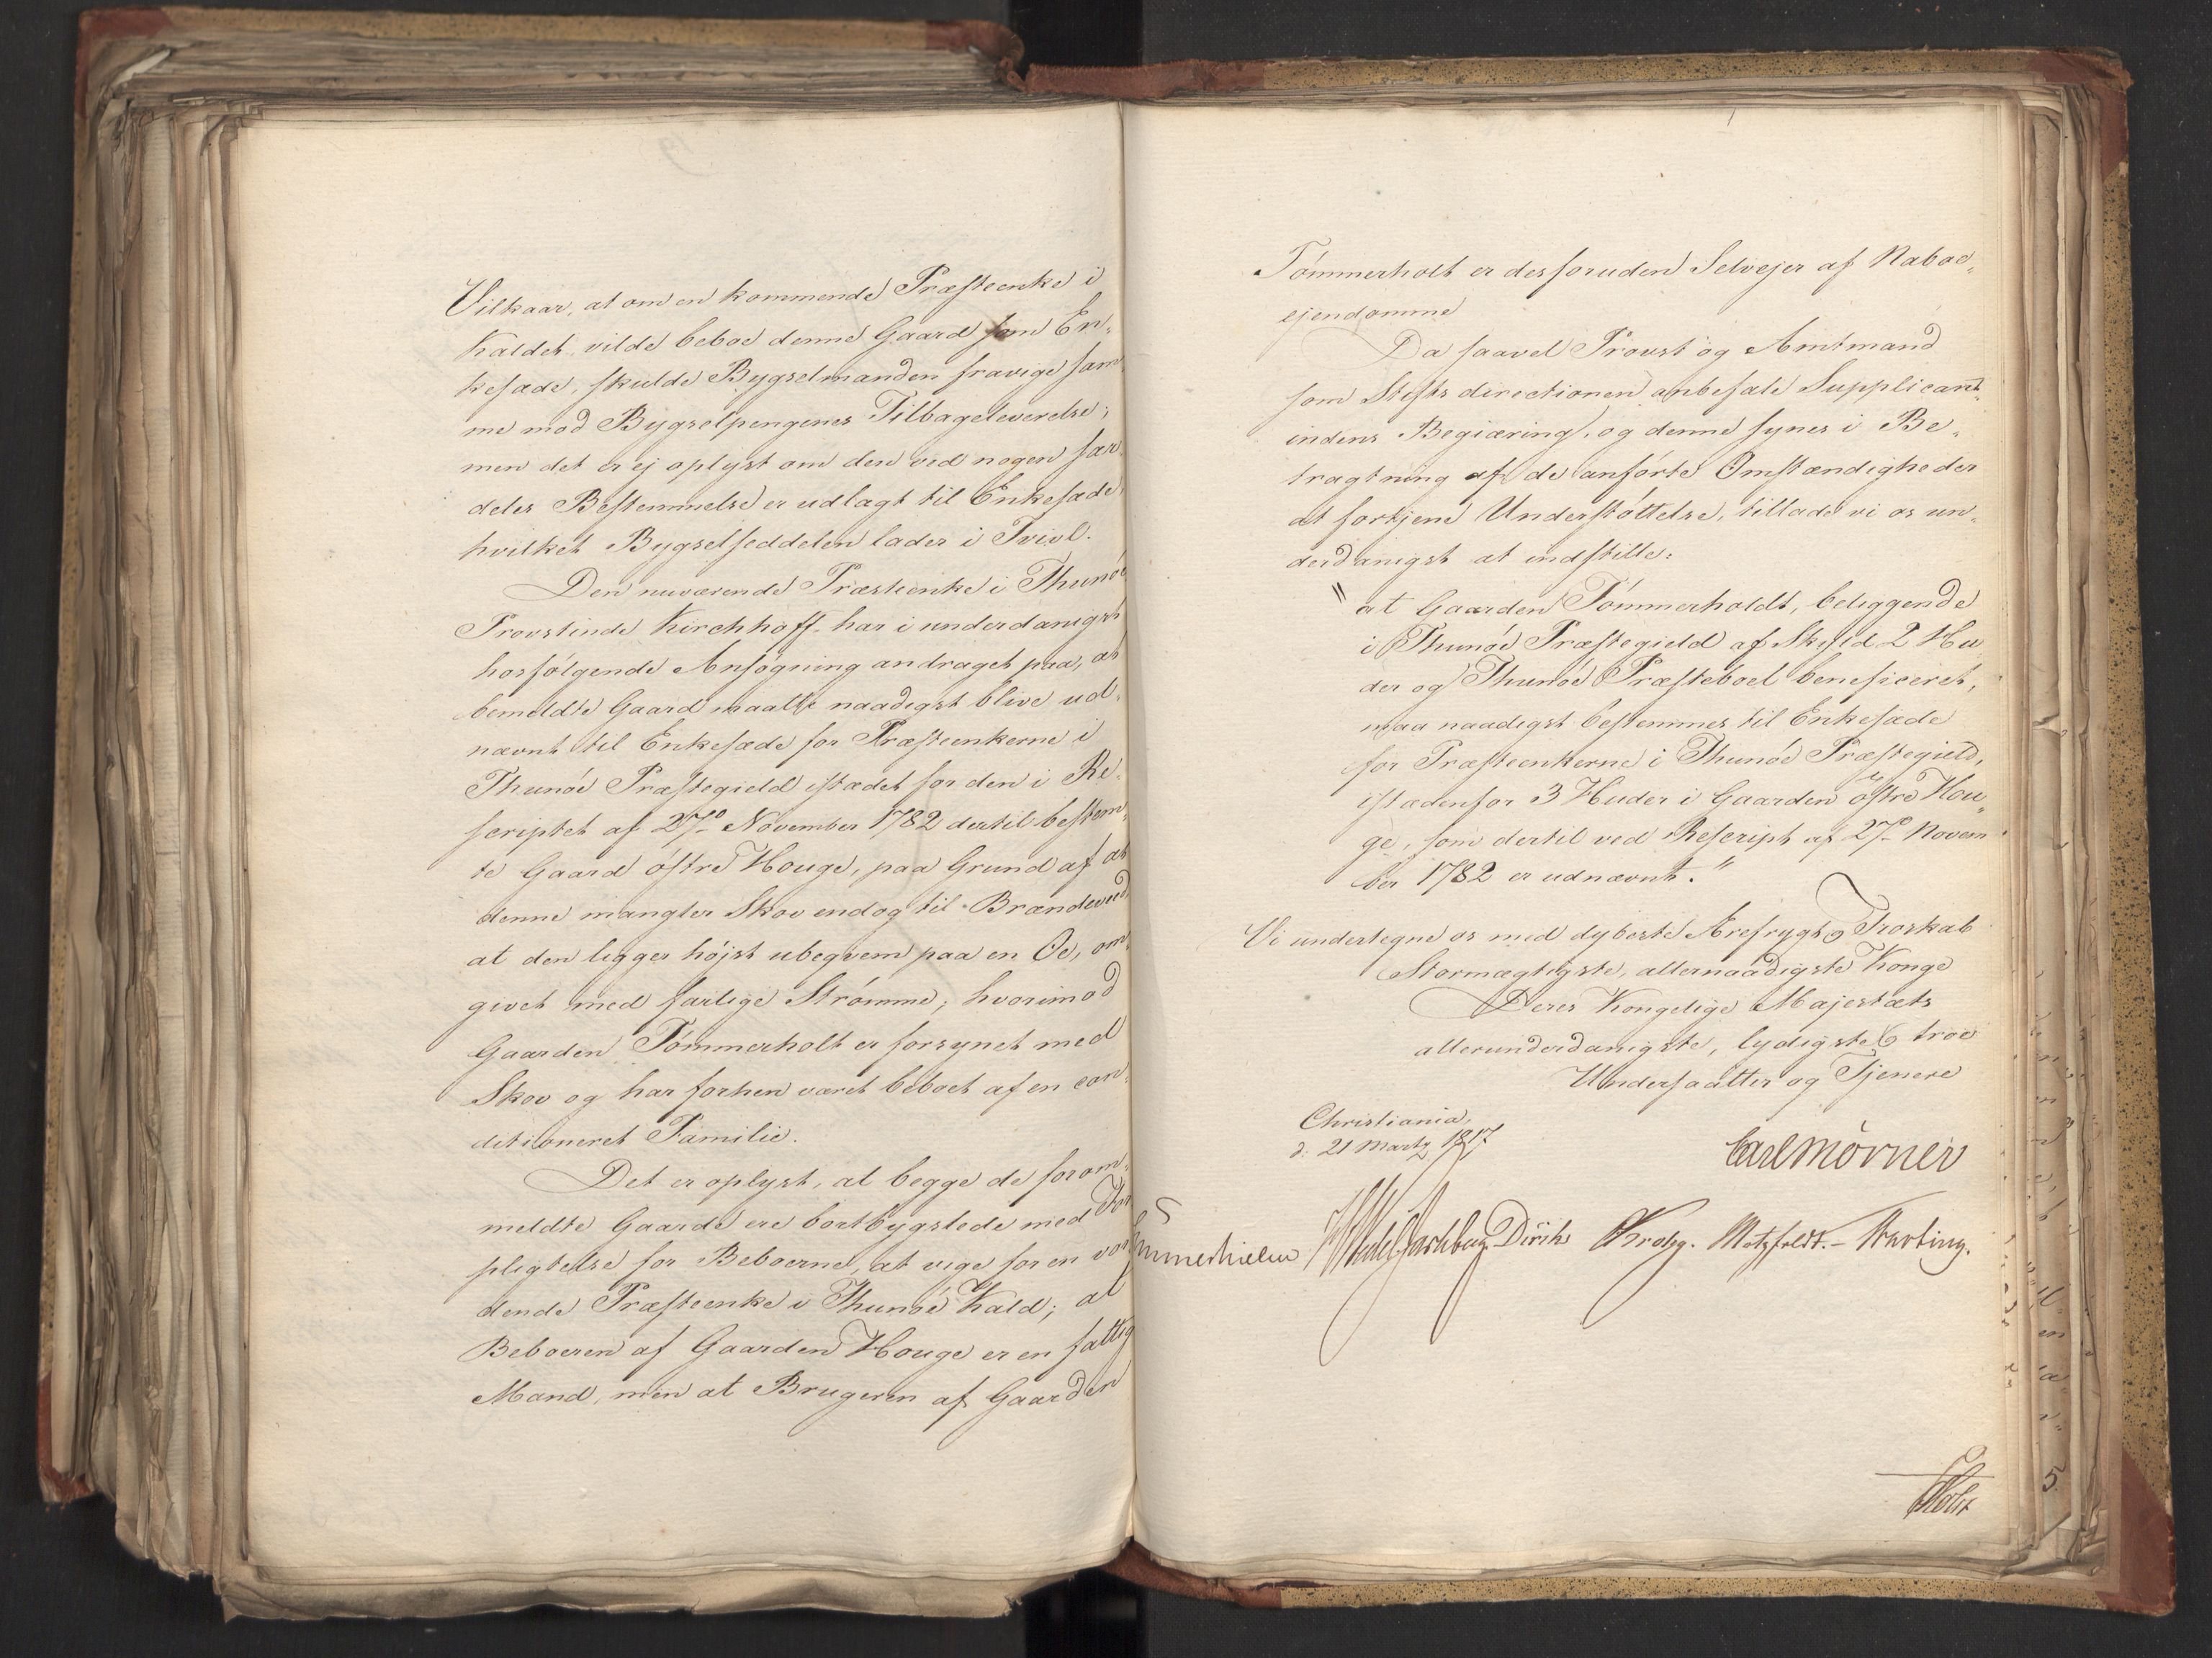 Vilkaar, at om en kommende Præsteenke i
Kaldet vilde beboe denne Gaard som En„
kesæde, skulde Bygselmanden fravige sam„
me mod Bygselpengenes Tilbageleverelse;
men det er ej oplyst om den ved nogen sær„
deles Bestemmelse er udlagt til Enkesæde,
hvilket Bygselseddelen lader i Tvivl.
Den nuværende Præsteenke i Thunöe
Provstinde Kirchhoff har i underdanigst
hosfølgende Ansøgning andraget paa, at
bemeldte Gaard maatte naadigst blive ud„
nævnt til Enkesæde for Præsteenkerne i
Thunöe Præstegield istædet for den i Re„
scriptet af 27de November 1782 dertil bestem„
te Gaard östre Houge, paa Grund af at
denne mangler Skov endog til Brændeved,
at den ligger højst ubeqvem paa en Oe, om„
givet med farlige Strömme; hvorimod
Gaarden Tömmerholt er forsynet med
Skov og har forhen været beboet af en con„
ditioneret Familie.
Det er oplyst, at begge de forom„
meldte Gaarde ere bortbygslede med For
pligtelse for Beboerne, at vige for en vor
dende Præsteenke i Thunöe Kald; at
Beboeren af Gaarden Houge er en fattig
Mand, men at Brugeren af Gaarden
Tömmerholt er desforuden Selvejer af Naboe„
ejendomme
Da saavel Provst og Amtmand
som Stiftsdirectionen anbefale Supplicant„
indens Begiæring, og denne synes i Be„
tragtning af de anförte Omstændigheder
at fortjene Understöttelse, tillade vi os un„
derdanigst at indstille:
"at Gaarden Tömmerholdt, beliggende
i Thunöe Præstegield af Skyld 2 Hu
der og Thunöe Præsteboel beneficeret,
maa naadigst bestemmes til Enkesæde
for Præsteenkerne i Thunöe Præstegield,
istædenfor 3 Huder i Gaarden östre Hou„
ge, som dertil ved Rescript af 27de Novem
ber 1782 er udnævnt."
Vi undertegne os med dybeste Ærefrygt og Troskab
Stormægtigste, allernaadigste Konge
Deres Kongelige Majestæts
allerunderdanigste, lydigste og troe
Undersaatter og Tjenere
Christiania,
d. 21 Martz 1817
Carl Mörner
Sommerhielm Diriks Krohg. Motzfeldt.
Holst